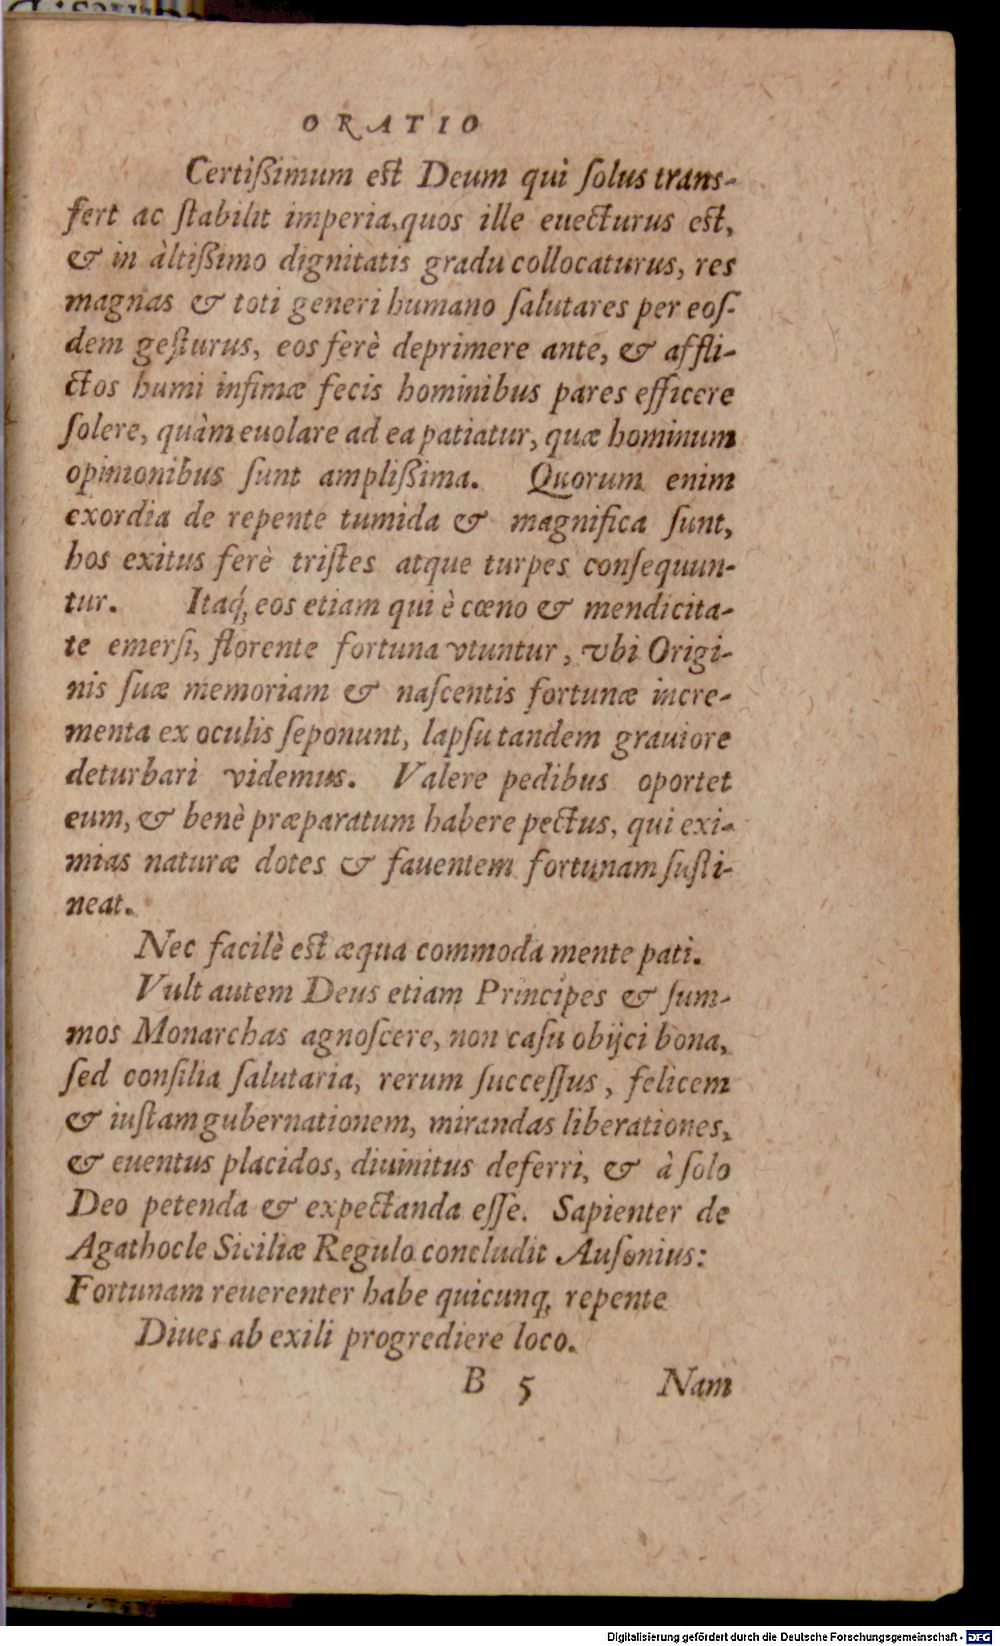 ORATIO
Certißimum est Deum qui ſolus trans-
fert ac ſtabilit imperia, quos ille euecturus est,
& in àltißimo dignitatis gradu collocaturus, res
magnas & toti generi humano ſalutares per eoſ-
dem geſturus, eos ferè deprimere ante, & affli-
ctos humi infimæ fecis hominibus pares efficere
ſolere, quàm euolare ad ea patiatur, quæ hominum
opinionibus ſunt amplißima. Quorum enim
exordia de repente tumida & magnifica ſunt,
hos exitus ferè triſtes atque turpes conſequun-
tur. Itaq́; eos etiam qui è cœno & mendicita-
te emerſi, florente fortuna vtuntur, vbi Origi-
nis ſuæ memoriam & naſcentis fortunæ incre-
menta ex oculis ſeponunt, lapſu tandem grauiore
deturbari videmus. Valere pedibus oportet
eum, & benè præparatum habere pectus, qui exi-
mias naturæ dotes & fauentem fortunam ſuſti-
neat.
Nec facilè est æqua commoda mente pati.
Vult autem Deus etiam Principes & ſum-
mos Monarchas agnoſcere, non caſu obijci bona,
ſed conſilia ſalutaria, rerum ſucceſſus, felicem
& iuſtam gubernationem, mirandas liberationes,
& euentus placidos, diuinitus deferri, & à ſolo
Deo petenda & expectanda eſſe. Sapienter de
Agathocle Siciliæ Regulo concludit Auſonius:
Fortunam reuerenter habe quicunq; repente
Diues ab exili progrediere loco.
B 5 Nam
Digitalisierung gefördert durch die Deutsche Forschungsgemeinschaft - DFG